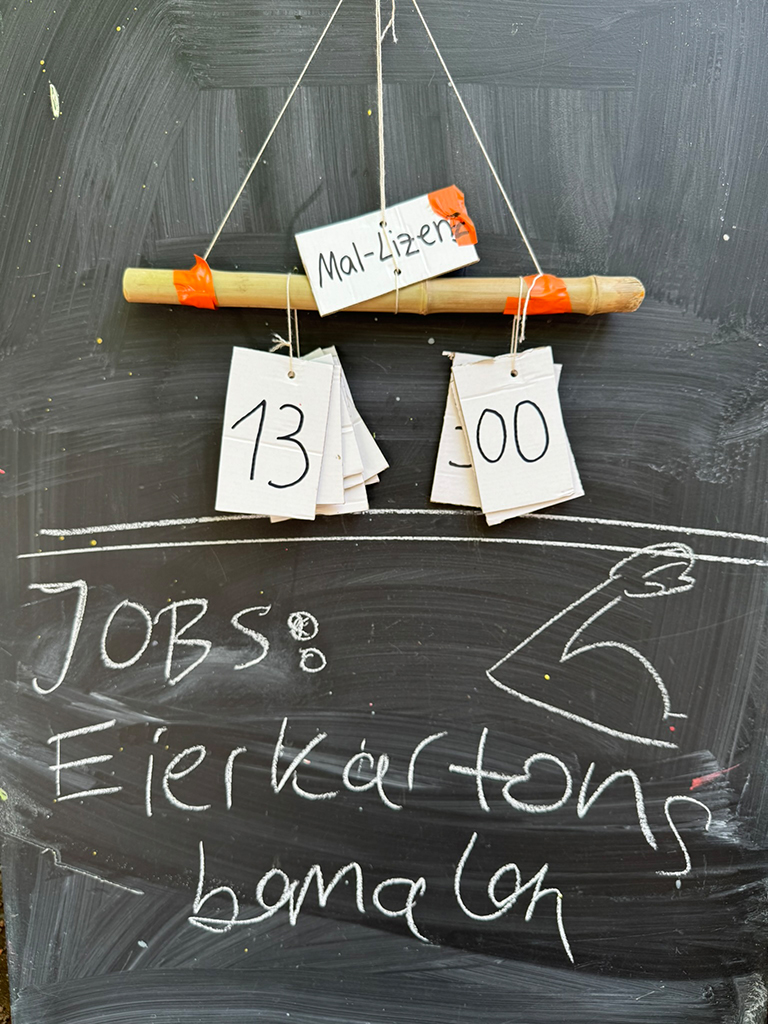 Mal-Lizenz
13 :00
JOBS:
Eierkartons
bemalen